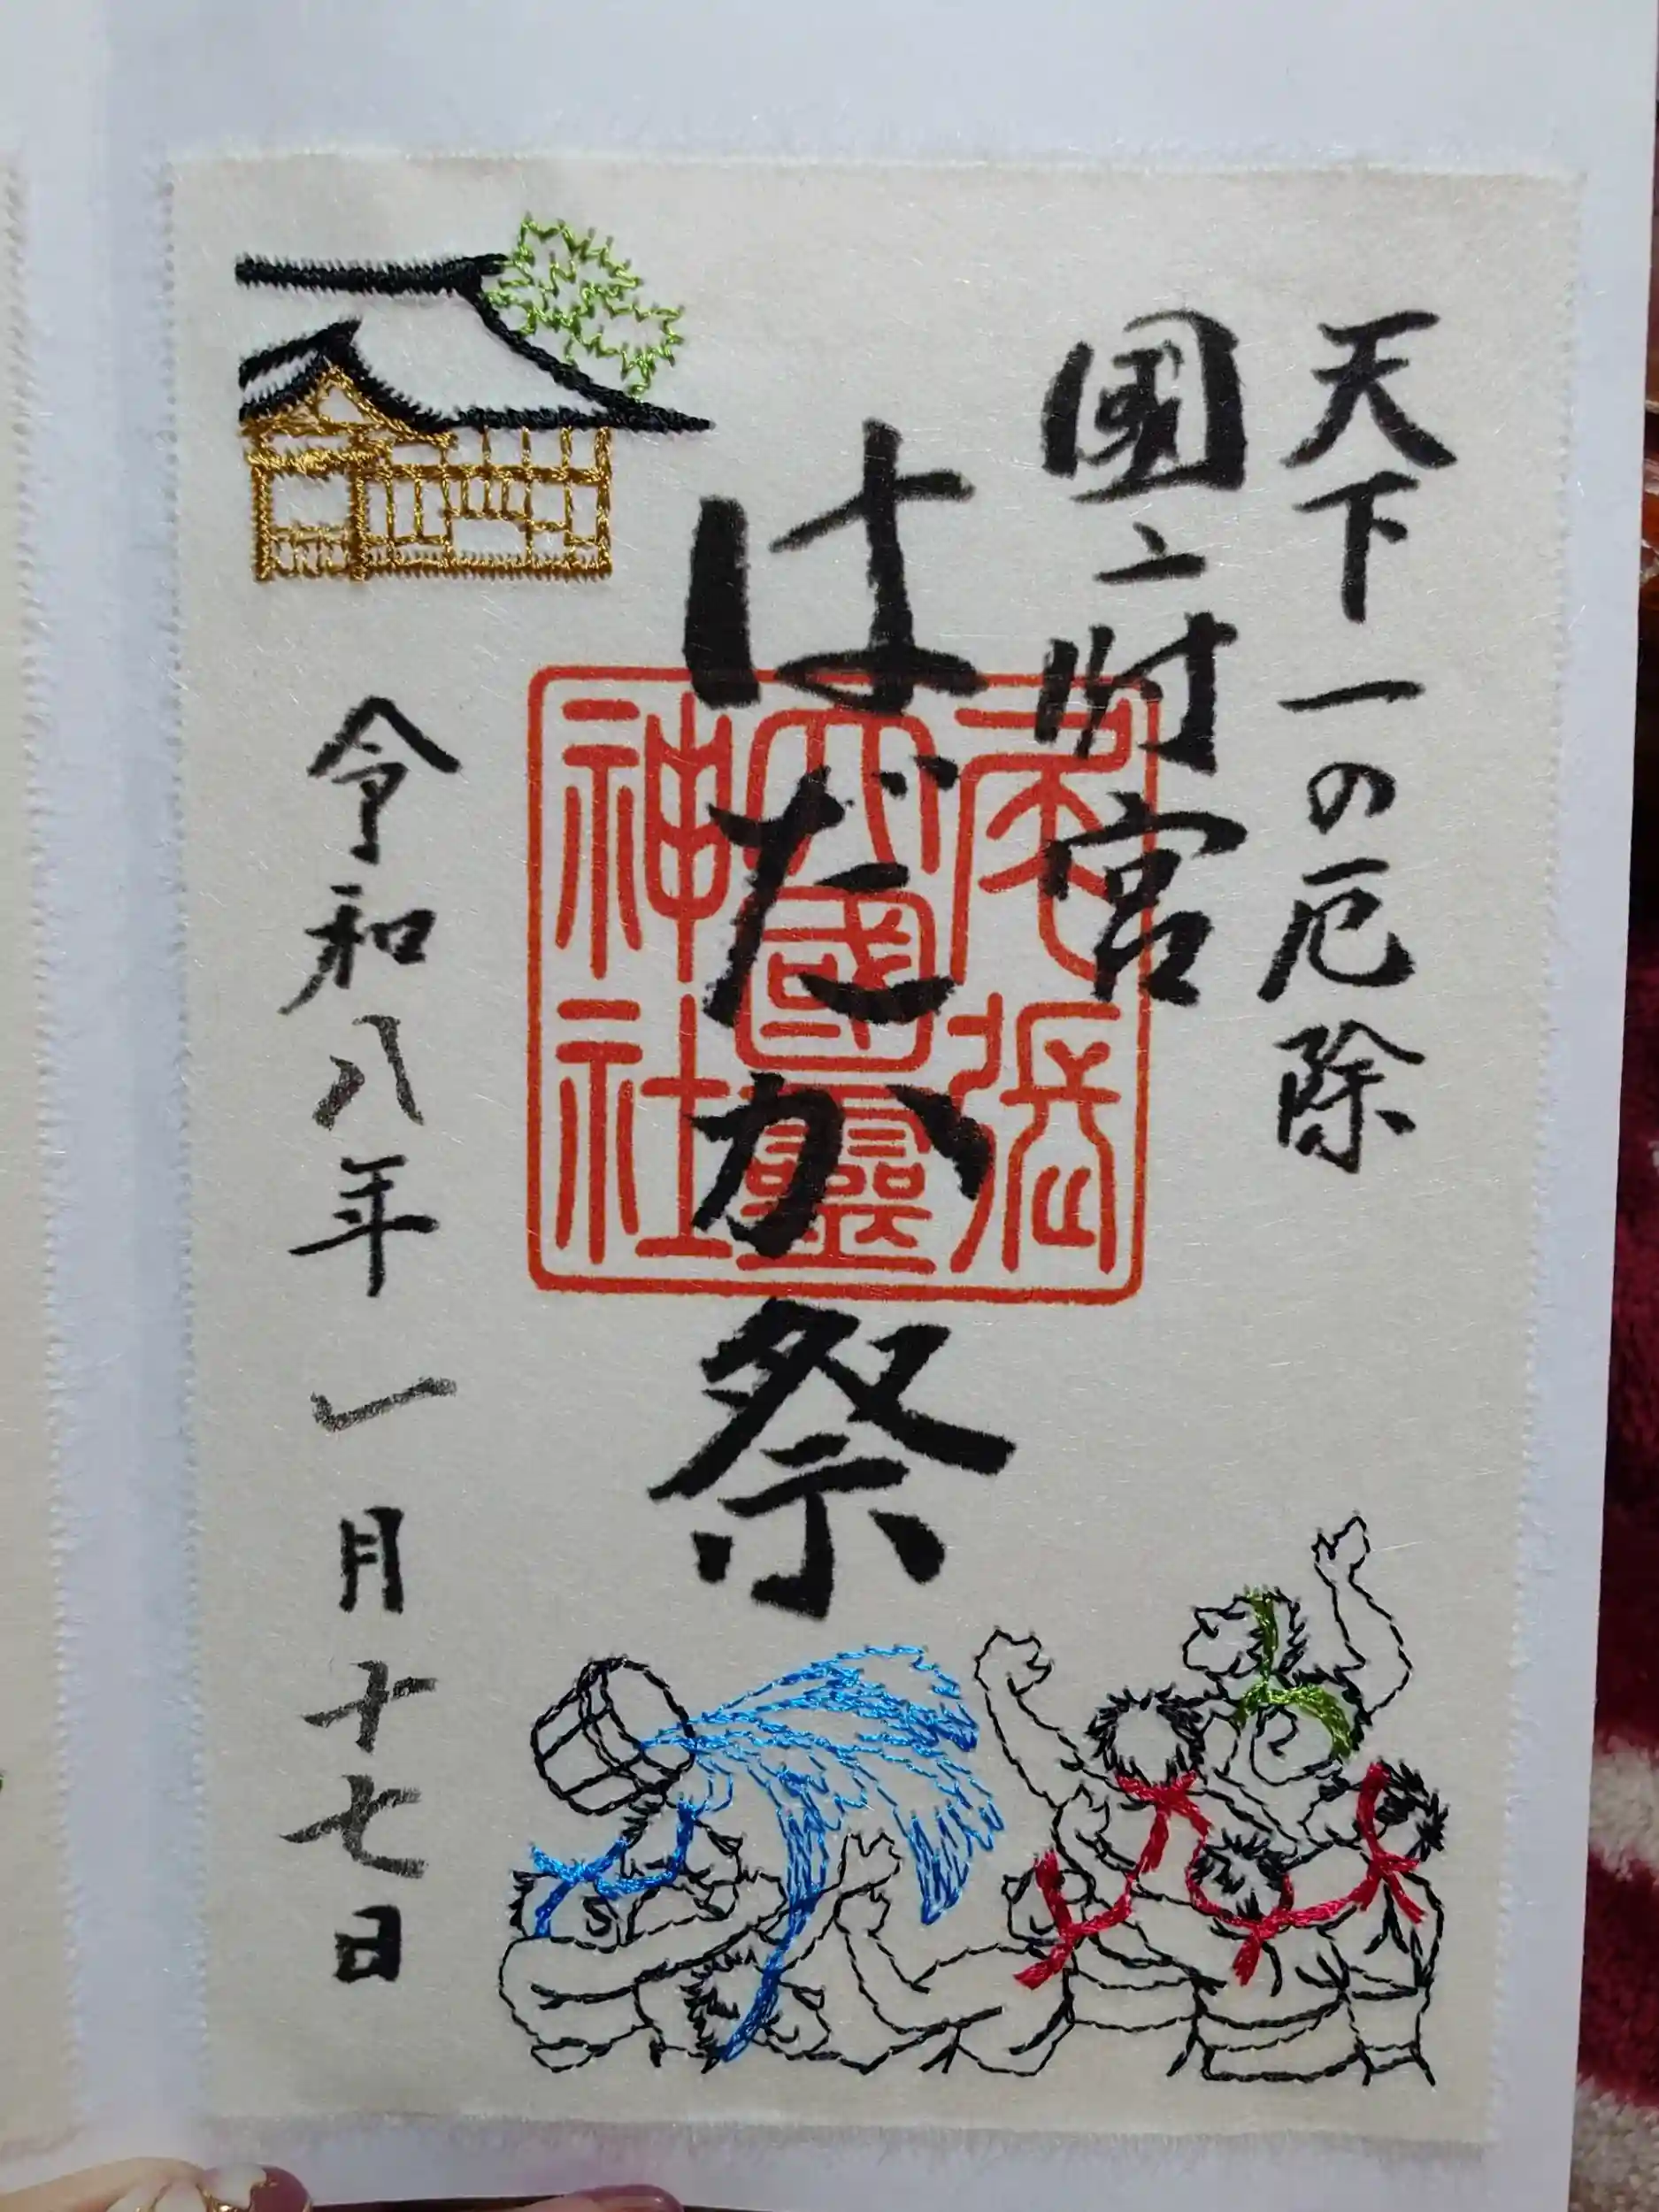 天下一の厄除
國府宮
はだか祭
尾張
大國霊
神社
令和八年一月十七日